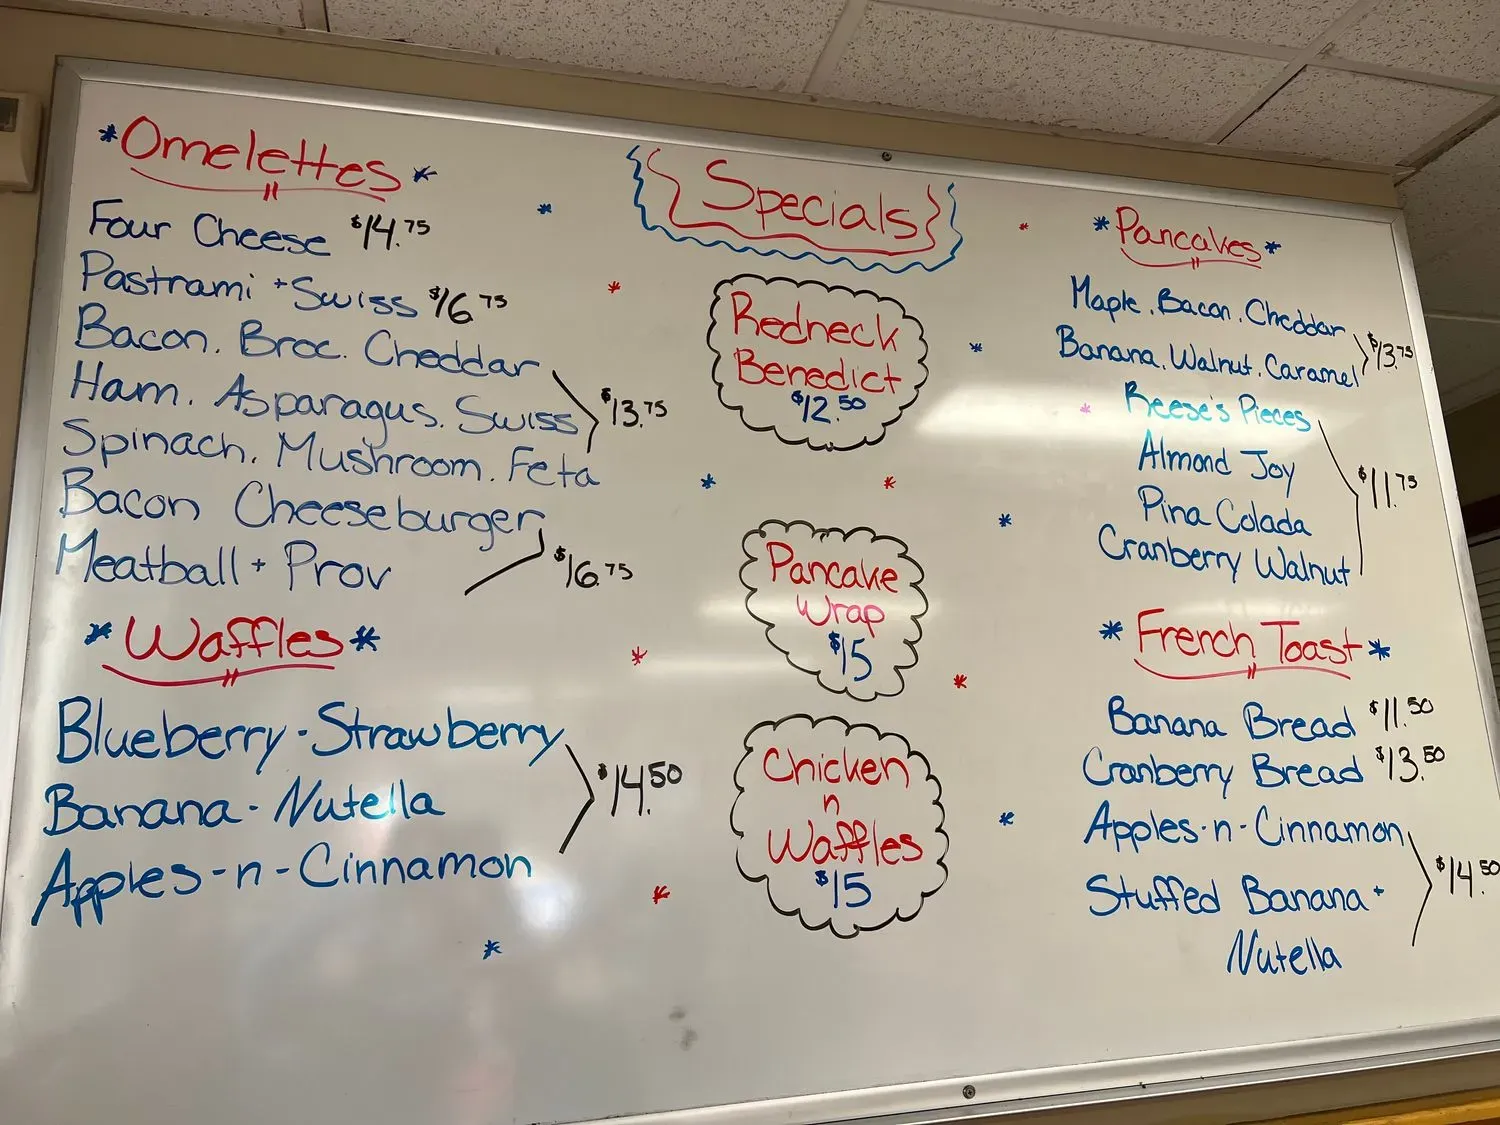 *Omelettes*
Four Cheese $14.75
Pastrami + Swiss $16.75
Bacon. Broc. Cheddar
Ham. Asparagus. Swiss $13.75
Spinach. Mushroom. Feta
Bacon Cheeseburger
Meatball + Prov $16.75
*Waffles*
Blueberry-Strawberry
Banana-Nutella $14.50
Apples-n-Cinnamon
Specials
Redneck
Benedict
$12.50
Pancake
Wrap
$15
Chicken
n
Waffles
$15
*Pancakes*
Maple. Bacon. Cheddar
Banana. Walnut. Caramel $13.75
Reese's Pieces
Almond Joy $11.75
Pina Colada
Cranberry Walnut
*French Toast*
Banana Bread $11.50
Cranberry Bread $13.50
Apples-n-Cinnamon
Stuffed Banana + $14.50
Nutella